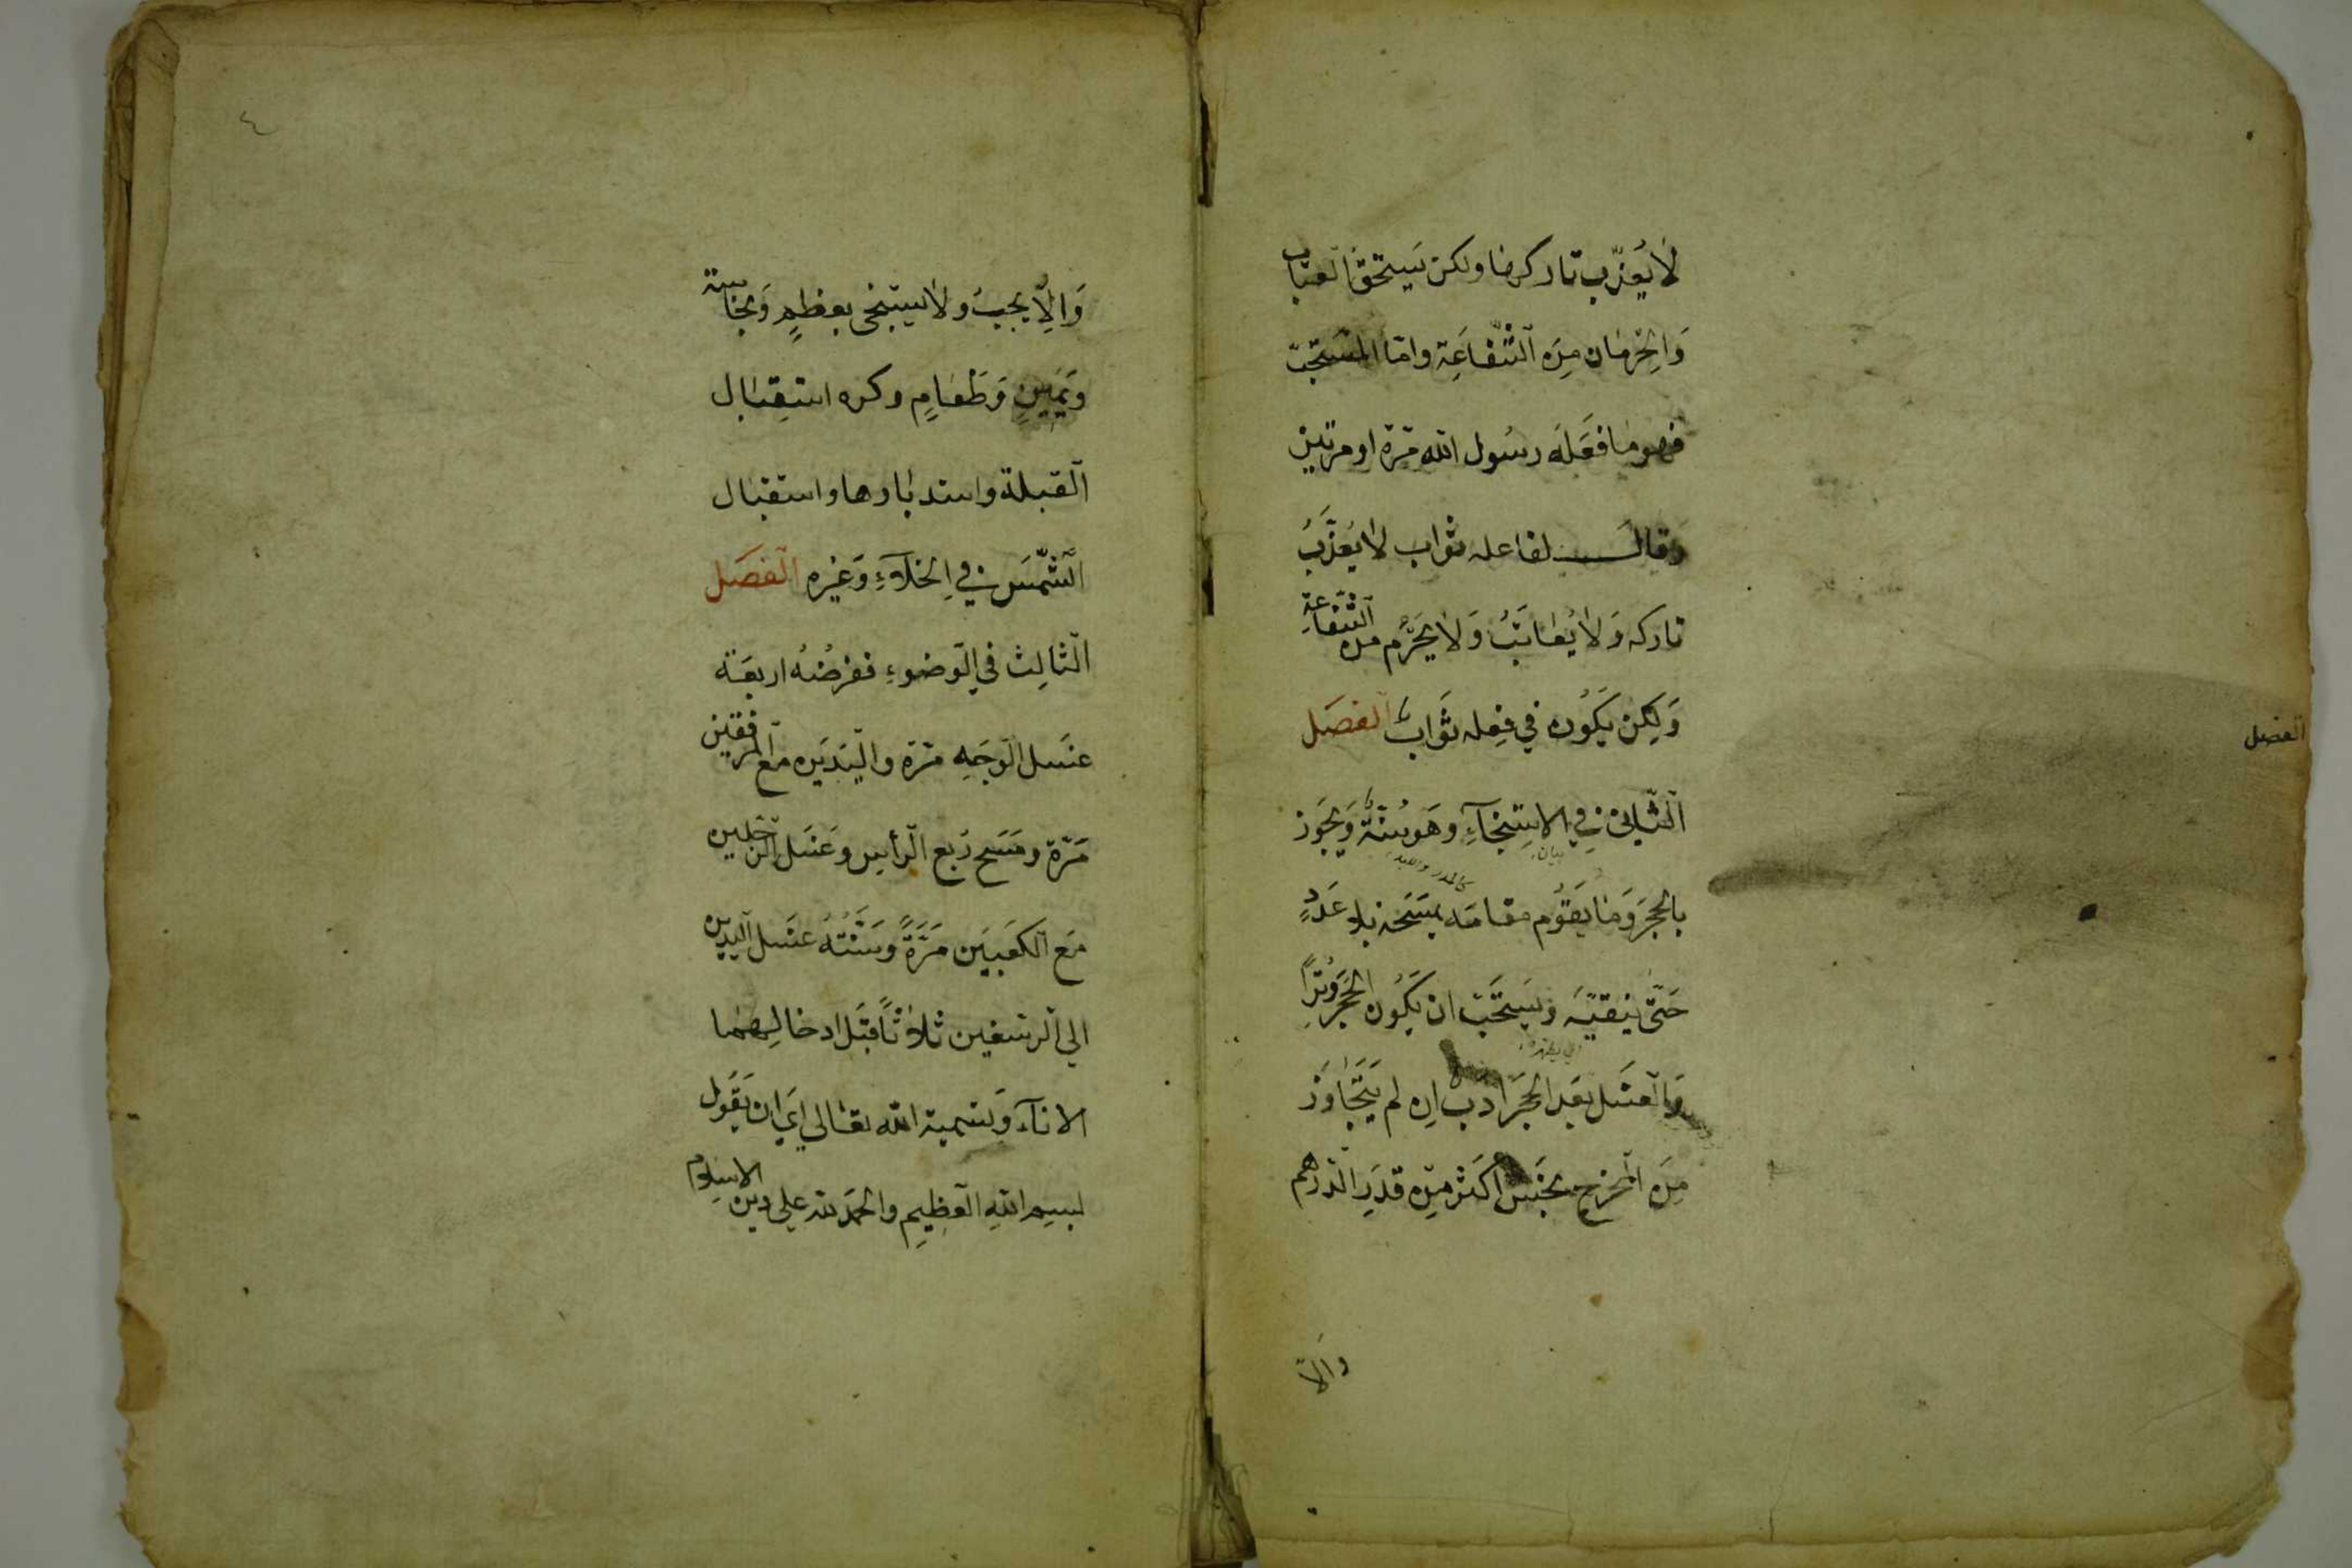 لَا يُعَذّب تاركها ولكن يَستحق العتاب
وَالحِرْمَان مِنَ الشَّفَاعَةِ وامّا المستَحَبّ
فهو مَا فَعَلَه رسُول الله مَرّة او مرّتين
وَقال لفاعله ثواب لا يُعَذَّبُ
تاركه وَلا يُعَاتَبُ وَلا يُحَرَّم من الشَّفَاعَةِ
وَلكِن يَكُون في فِعله ثَوَابٌ الفصَل
الفصل
الثّاني فِي الاستِنجَآءِ وَهو سُنّةٌ وَيَجوز
بيان
بالحجَر وَمَا يَقوُم مقامَه يمسَحه بلا عَدَدٍ
حَتّى ينقيَه وَيستَحَبّ ان يَكُون الحَجَر وِتْرًا
وَالغَسل بعَد الحَجَر ادب اِن لم يَتَجَاوَز
مِنَ المخرَج نجَس اكثر مِن قدَرِ الدّرهم
والّا
٤
وَاِلّا يجبُ ولا يستنجى بعظمٍ وَنجاسة
وَيَمِينٍ وَطَعَامٍ وكره استِقبَال
القبلة واستدبارها واستقبال
الشّمسَ فِي الخلَآءِ وَغيره الفصَل
الثالِث في الوَضوءِ ففرضُهُ اربعَة
غسَل الوَجَهِ مرّة واليَدَين مَع المرفقين
مَرّة ومَسَح رَبع الرأسِ وغَسَل الرّجلين
مَع الكعَبَين مَرّةً وَسُنَّتُهُ غسَل اليدين
الي الرسغين ثلاثاً قبَل ادخالِهما
الاناءَ وَتسَمية الله تعَالي اي ان يَقوُل
بسِم اللهِ العَظيمِ والحَمد لله علي دين الاسلام